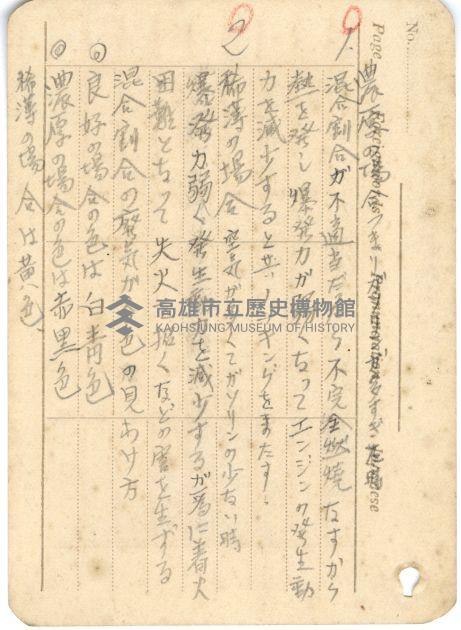 No.
Page
1. 濃厚の場合
混合割合が不適当だから不完全燃焼なすから
熱を発し爆発力が くなってエンジンの発生動
力を減少すると共ノッキングをまたす。
2 稀薄の場合 空気が くてガソリンの少ない時
爆発力弱く発生 を減少するが為に着火
困難となって失火 招くなどの害を生ずる
混合割合の 気が 色の見わけ方
◎良好の場合の色は白青色
◎濃厚の場合の色は赤黒色
稀薄の場合は黄色
高雄市立歷史博物館
KAOHSIUNG MUSEUM OF HISTORY